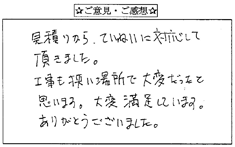 ☆ご意見・ご感想☆
見積りから、ていねいに対応して
頂きました。
工事も狭い場所で大変だったと
思います。大変満足しています。
ありがとうございました。